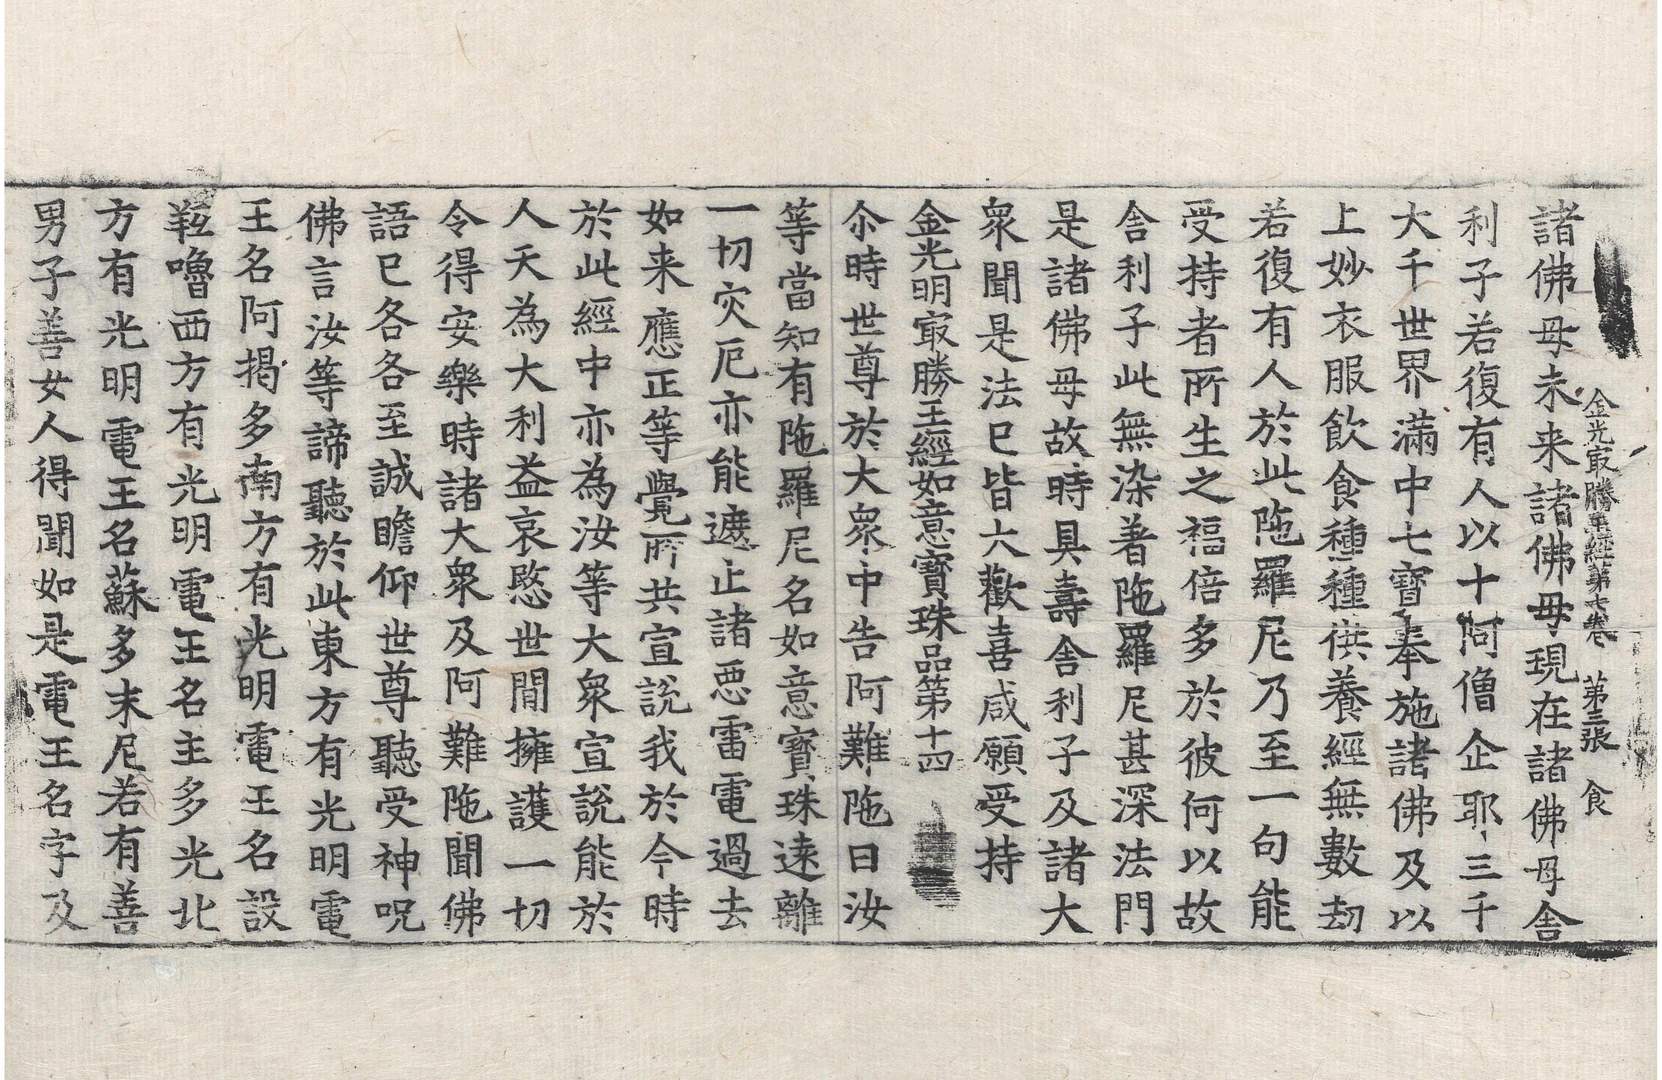 金光㝡勝王經第七卷　第三張　食
諸佛母未来諸佛母現在諸佛母舎
利子若復有人以十阿僧企耶三千
大千世界滿中七寳奉施諸佛及以
上妙衣服飲食種種供養經無數刧
若復有人於此陁羅尼乃至一句能
受持者所生之福倍多於彼何以故
舎利子此無染著陁羅尼甚深法門
是諸佛母故時具壽舎利子及諸大
衆聞是法已皆大歡喜咸願受持
金光明㝡勝王經如意寳珠品第十四
尒時世尊於大衆中告阿難陁曰汝
等當知有陁羅尼名如意寳珠逺離
一切灾厄亦能遮止諸惡雷電過去
如来應正等覺所共宣説我於今時
於此經中亦為汝等大衆宣説能於
人天為大利益哀愍世間擁護一切
令得安樂時諸大衆及阿難陁聞佛
語已各各至誠瞻仰世尊聽受神呪
佛言汝等諦聽於此東方有光明電
王名阿揭多南方有光明電王名設
羝嚕西方有光明電王名主多光北
方有光明電王名蘇多末尼若有善
男子善女人得聞如是電王名字及